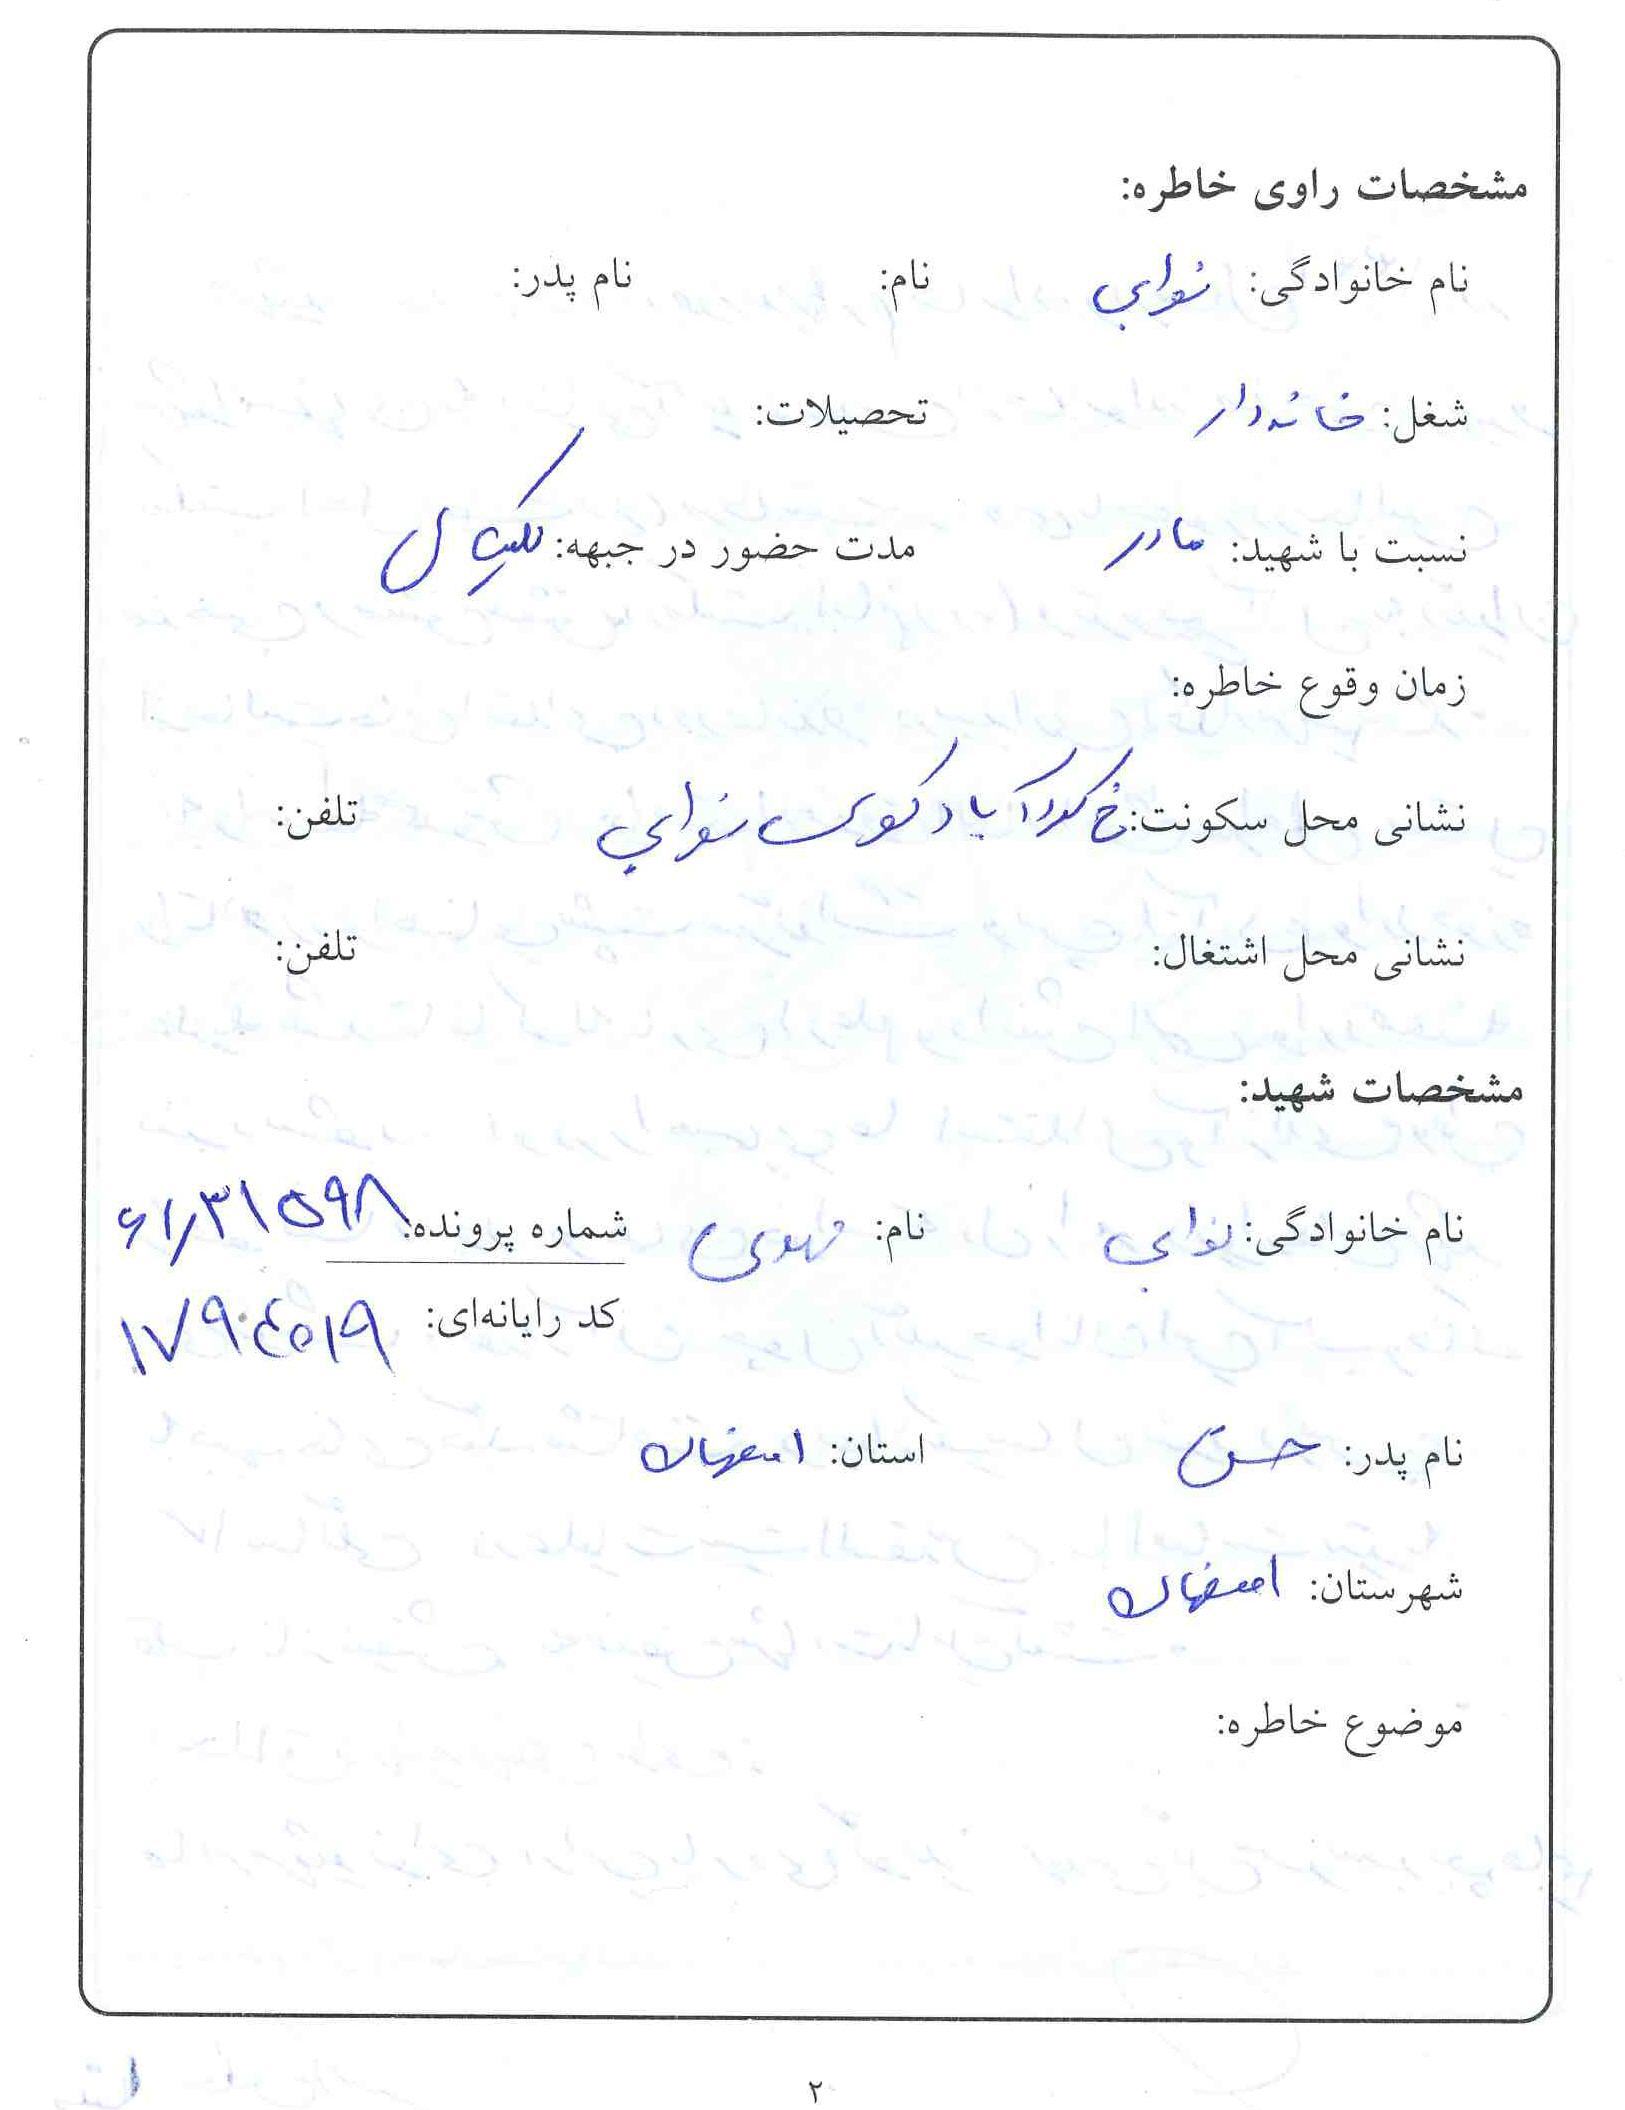 مشخصات راوی خاطره:
نام خانوادگی: نوابی نام: نام پدر:
شغل: خانه‌دار تحصیلات:
نسبت با شهید: مادر مدت حضور در جبهه: یکسال
زمان وقوع خاطره:
نشانی محل سکونت: خ آباد کوی نوابی تلفن:
نشانی محل اشتغال: تلفن:
مشخصات شهید:
نام خانوادگی: نوابی نام: مهدی شماره پرونده: ۶۱/۳۱۵۹۸
کد رایانه‌ای: ۱۷۹۰۴۵۱۹
نام پدر: حسن استان: اصفهان
شهرستان: اصفهان
موضوع خاطره:
۲